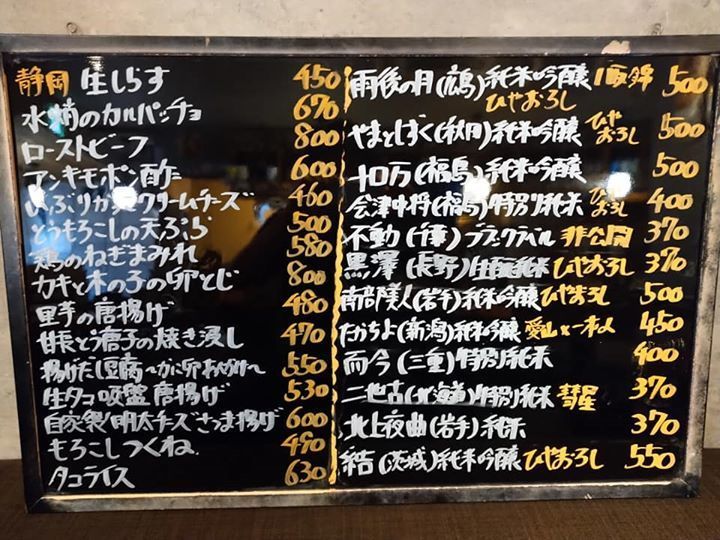 静岡 生しらす 450
水蛸のカルパッチョ 670
ローストビーフ 800
アンキモポン酢 600
いぶりがっこクリームチーズ 460
とうもろこしの天ぷら 500
鶏のねぎまみれ 580
カキと木の子の卵とじ 800
里芋の唐揚げ 480
甘長とう唐子の焼き浸し 470
揚げだし豆腐〜かに卵あんかけ〜 550
生タコ吸盤唐揚げ 530
自家製明太チーズさつま揚げ 600
もろこしつくね 490
タコライス 630
雨後の月(広島)純米吟醸 500
ひやおろし
やまとしずく(秋田)純米吟醸 ひやおろし 500
十ロ万(福島)純米吟醸 500
会津中将(福島)特別純米 ひやおろし 400
不動(千葉)ブラックラベル 非公開 370
黒澤(長野)生酛純米 ひやおろし 370
南部美人(岩手)純米吟醸 ひやおろし 500
たかちよ(新潟)純米吟醸 愛山 450
而今(三重)特別純米 400
二世古(北海道)特別純米 彗星 370
北上夜曲(岩手)純米 370
結(茨城)純米吟醸 ひやおろし 550